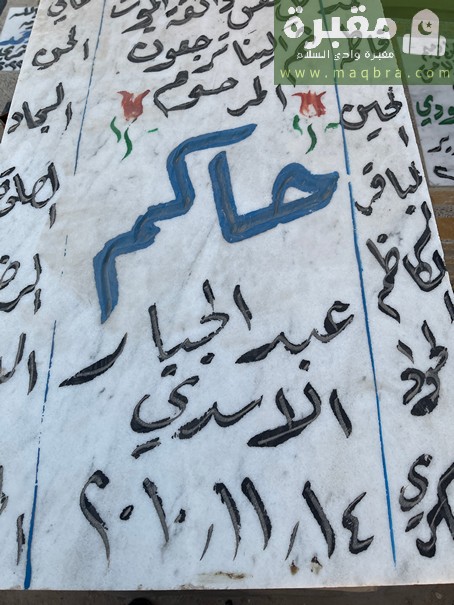 مقبرة
مقبرة وادي السلام
www.maqbra.com
نفس ذائقة الموت
ثم الينا ترجعون
المرحوم
حاكم
عبد الجبار
الاسدي
٢٠١٠.١١.١٤
فاطمة
الحسين
الباقر
الكاظم
الجواد
العسكري
الحسن
السجاد
الصادق
الرضا